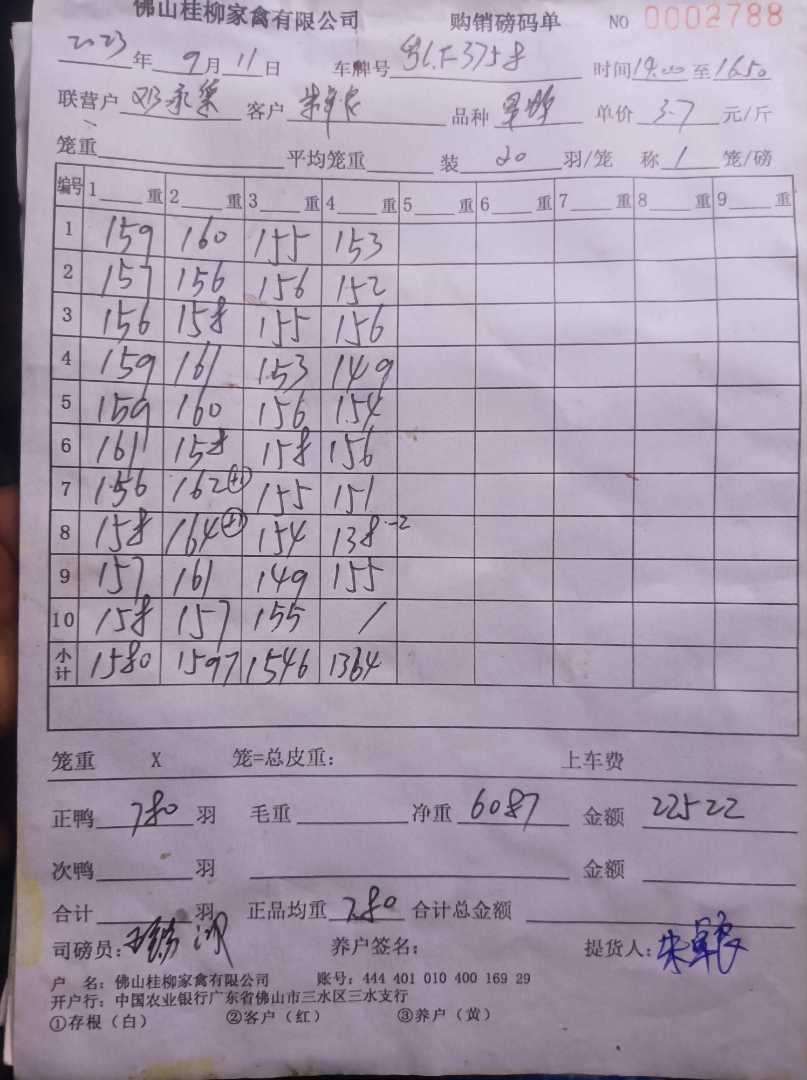 佛山桂柳家禽有限公司 购销磅码单 NO 0002788
2023年 9月 11日 车牌号 F3758 时间14:00至1650
联营户 邓永 客户 朱军良 品种 单价 3.7 元/斤
笼重 平均笼重 装 20 羽/笼 称 1 笼/磅
编号 1 重 2 重 3 重 4 重 5 重 6 重 7 重 8 重 9 重
1 159 160 155 153
2 157 156 156 152
3 156 158 155 156
4 159 161 153 149
5 159 160 156 154
6 161 158 158 156
7 156 162 (+1) 155 151
8 158 164 (+1) 154 138 -2
9 157 161 149 155
10 158 157 155 /
小计 1580 1597 1546 1364
笼重 X 笼=总皮重: 上车费
正鸭 780 羽 毛重 净重 6087 金额 22522
次鸭 羽 金额
合计 羽 正品均重 7.80 合计总金额
司磅员: 养户签名: 提货人: 朱军良
户 名: 佛山桂柳家禽有限公司 账号: 444 401 010 400 169 29
开户行: 中国农业银行广东省佛山市三水区三水支行
①存根(白) ②客户(红) ③养户(黄)